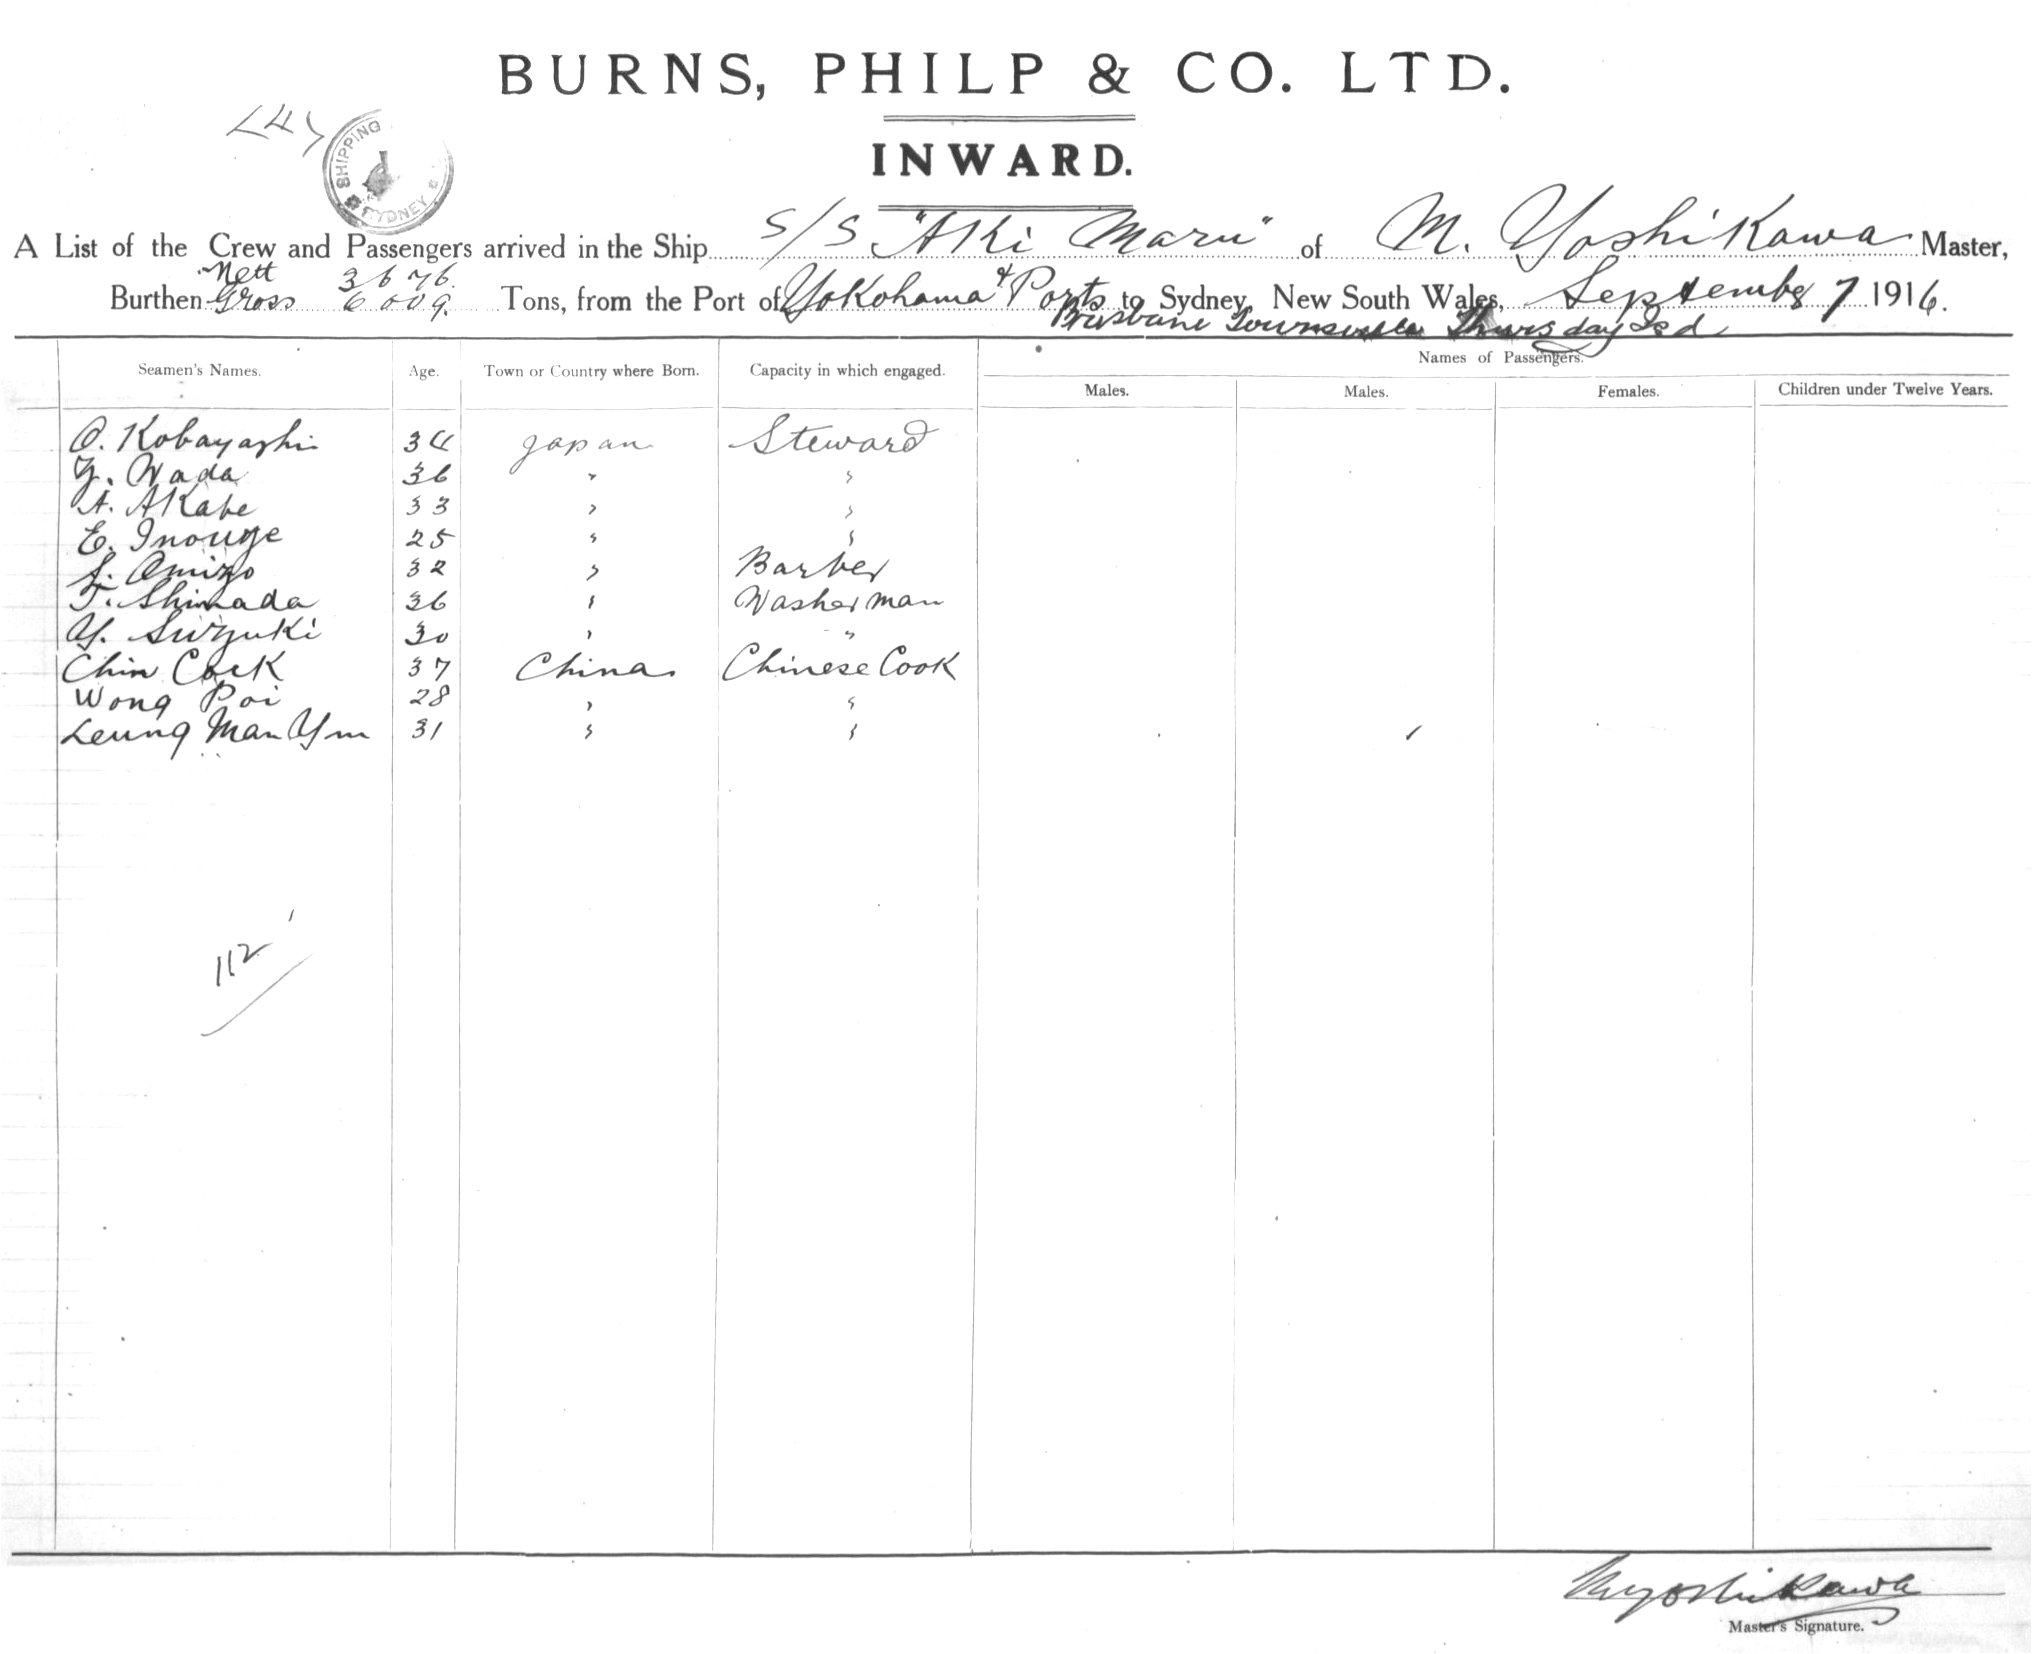 BURNS, PHILP & CO. LTD.
<4>
SHIPPING
SYDNEY
INWARD.
A List of the Crew and Passengers arrived in the Ship S/S "Aki Maru" of M. Yoshikawa Master,
Nett 3676.
Burthen Gross 6009. Tons, from the Port of Yokohama & Ports to Sydney, New South Wales, September 7 1916.
Brisbane Townsville Thursday Isd
Seamen's Names. Age. Town or Country where Born. Capacity in which engaged. Names of Passengers.
Males. Males. Females. Children under Twelve Years.
O. Kobayashi 34 Japan Steward
Y. Wada 36 " "
A. Akabe 33 " "
E. Inouye 25 " "
S. Omizo 32 " Barber
T. Shimada 36 " Washerman
Y. Suzuki 30 " "
Chin Cock 37 China Chinese Cook
Wong Poi 28 " "
Leung Man Yin 31 " "
112
M Yoshikawa
Master's Signature.